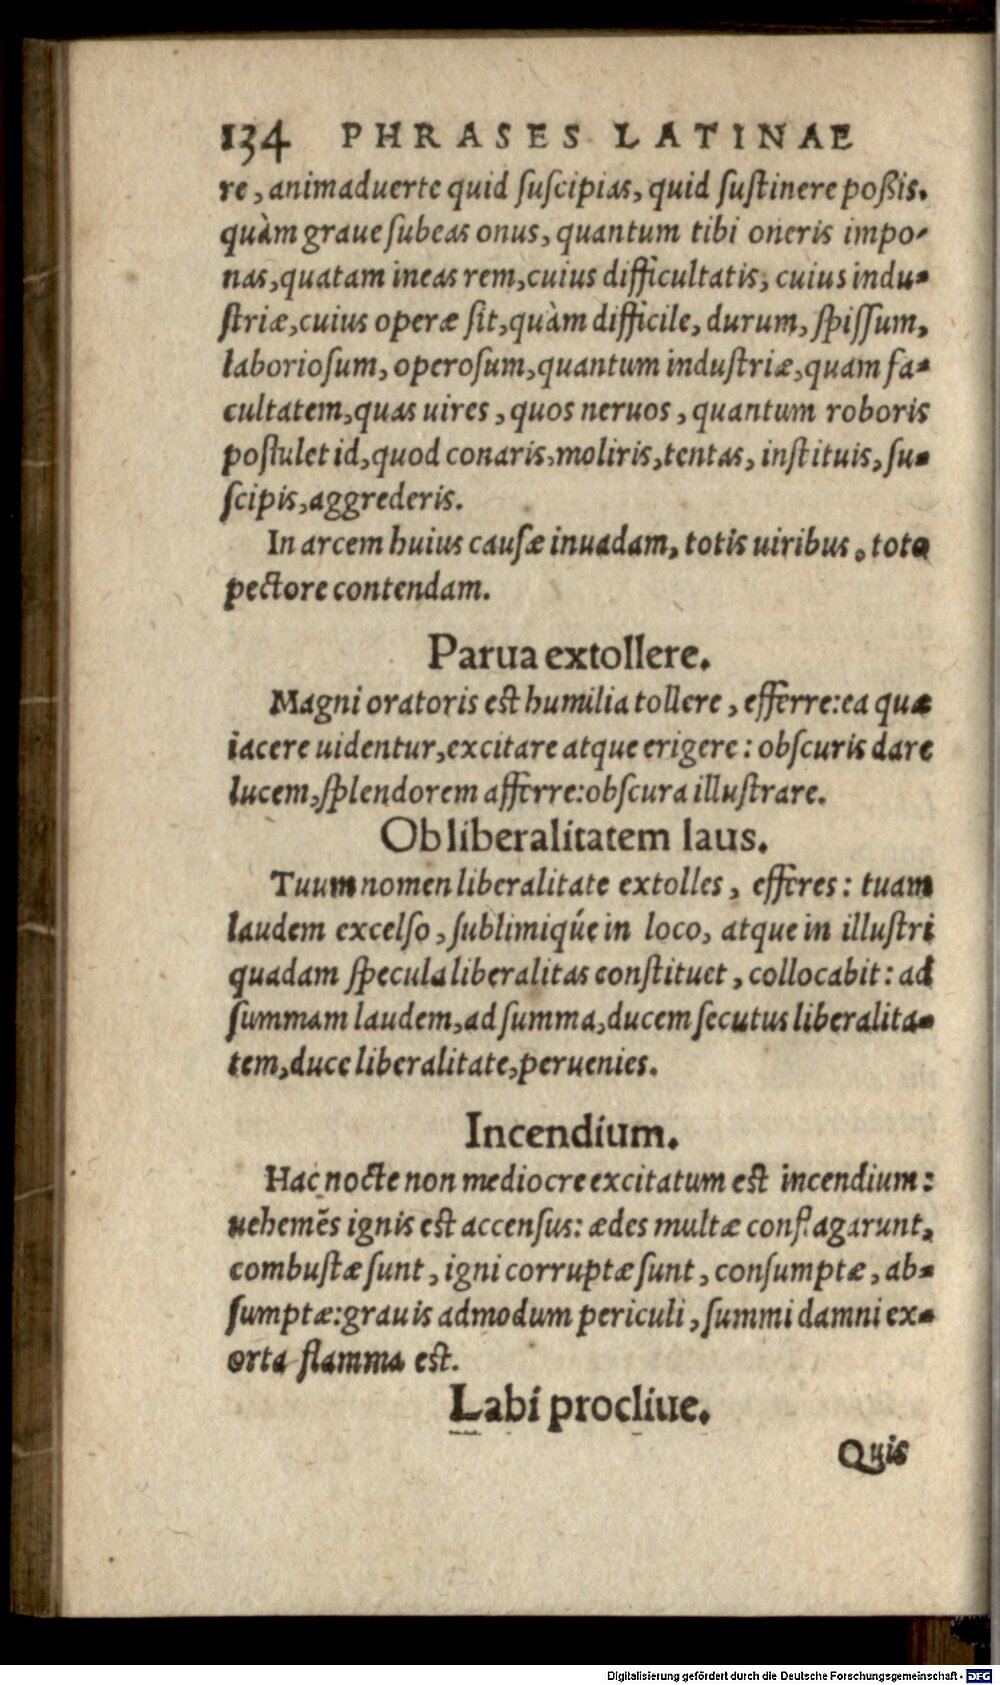 134 PHRASES LATINAE
re, animaduerte quid suscipias, quid sustinere poßis.
quàm graue subeas onus, quantum tibi oneris impo-
nas, quatam ineas rem, cuius difficultatis, cuius indu-
striæ, cuius operæ sit, quàm difficile, durum, spissum,
laboriosum, operosum, quantum industriæ, quam fa-
cultatem, quas uires, quos neruos, quantum roboris
postulet id, quod conaris, moliris, tentas, instituis, su-
scipis, aggrederis.
In arcem huius causæ inuadam, totis uiribus. toto
pectore contendam.
Parua extollere.
Magni oratoris est humilia tollere, efferre: ea quæ
iacere uidentur, excitare atque erigere: obscuris dare
lucem, splendorem afferre: obscura illustrare.
Ob liberalitatem laus.
Tuum nomen liberalitate extolles, efferes: tuam
laudem excelso, sublimiq́ue in loco, atque in illustri
quadam specula liberalitas constituet, collocabit: ad
summam laudem, ad summa, ducem secutus liberalita-
tem, duce liberalitate, peruenies.
Incendium.
Hac nocte non mediocre excitatum est incendium:
uehemẽs ignis est accensus: ædes multæ conflagarunt,
combustæ sunt, igni corruptæ sunt, consumptæ, ab-
sumptæ: grauis admodum periculi, summi damni ex-
orta flamma est.
Labi procliue.
Quis
Digitalisierung gefördert durch die Deutsche Forschungsgemeinschaft - DFG